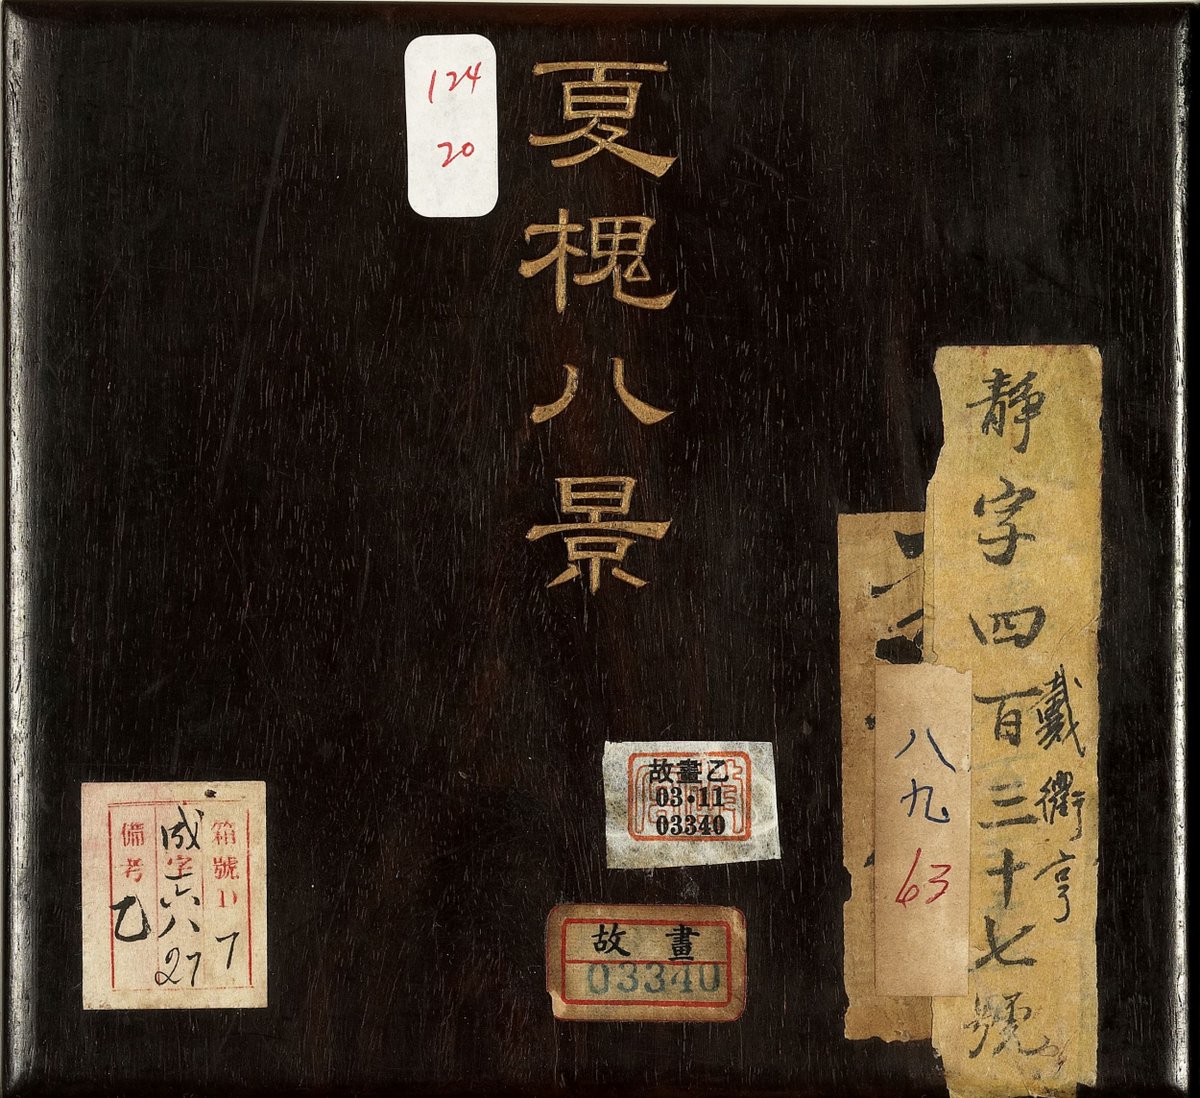 夏槐八景
124
20
靜字四百三十七號
戴衢亨
八九
63
故畫乙
03•11
03340
故畫
03340
箱號D
7
咸字六八
27
備考
乙